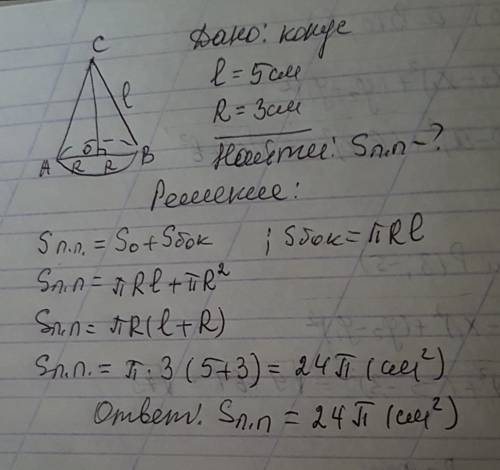 C
Дано: конус
l
l = 5см
R = 3см
A R O h R B
Найти: Sп.п - ?
Решение:
Sп.п. = So + Sбок ; Sбок = πRl
Sп.п = πRl + πR²
Sп.п = πR(l + R)
Sп.п. = π · 3 (5+3) = 24π (см²)
Ответ. Sп.п = 24π (см²)